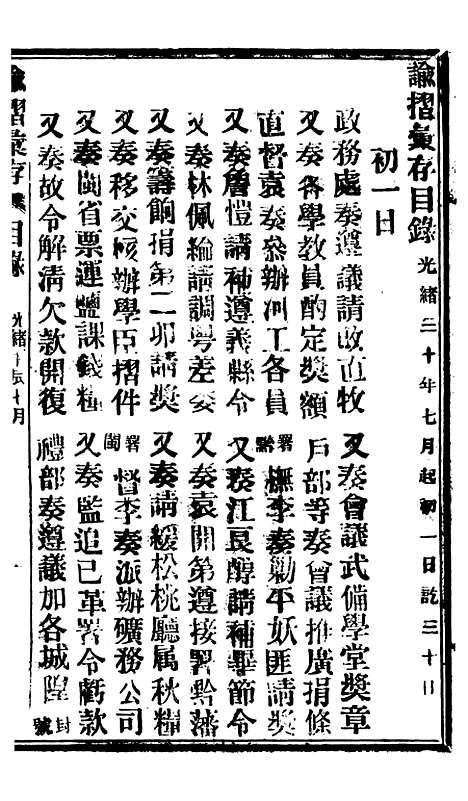 諭摺彙存目錄 光緒三十年七月起初一日訖三十日
初一日
政務處奏遵議請改直牧
又奏會議武備學堂獎章
又奏各學教員酌定獎額
戶部等奏會議推廣捐條
直督袁奏參辦河工各員
署黔撫李奏勦平妖匪請獎
又奏詹愷請補遵義縣令
又奏江良醇請補畢節令
又奏林佩綸請調粵差委
又奏袁開第遵接署黔藩
又奏籌餉捐第二卯請獎
又奏請緩松桃廳屬秋糧
又奏移交核辦學臣摺件
署閩督李奏派辦礦務公司
又奏閩省票運鹽課錢糧
又奏監追已革署令虧款
又奏故令解清欠款開復
禮部奏遵議加各城隍封號
諭摺彙存 目錄 光緒 七月